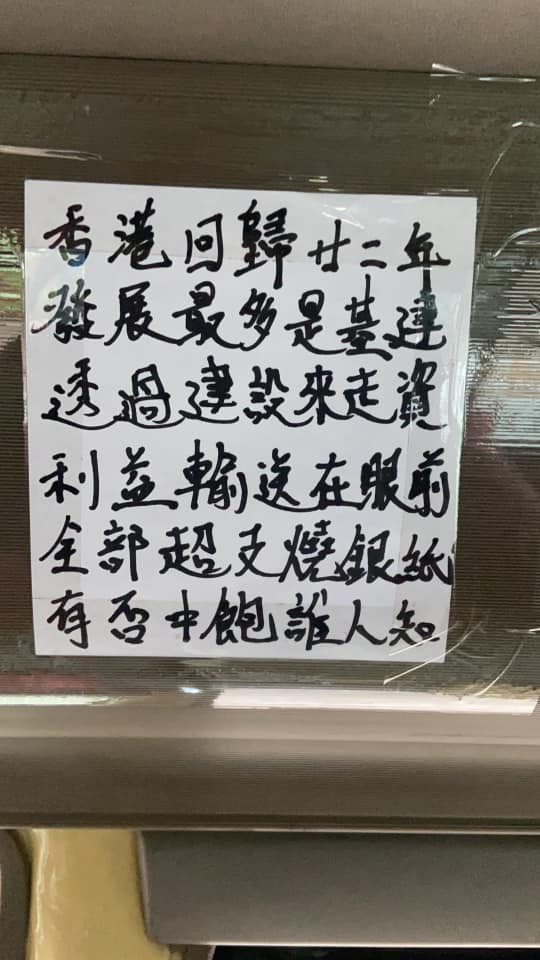 香港回歸廿二年
發展最多是基建
透過建設來走資
利益輸送在眼前
全部超支燒銀紙
有否中飽誰人知